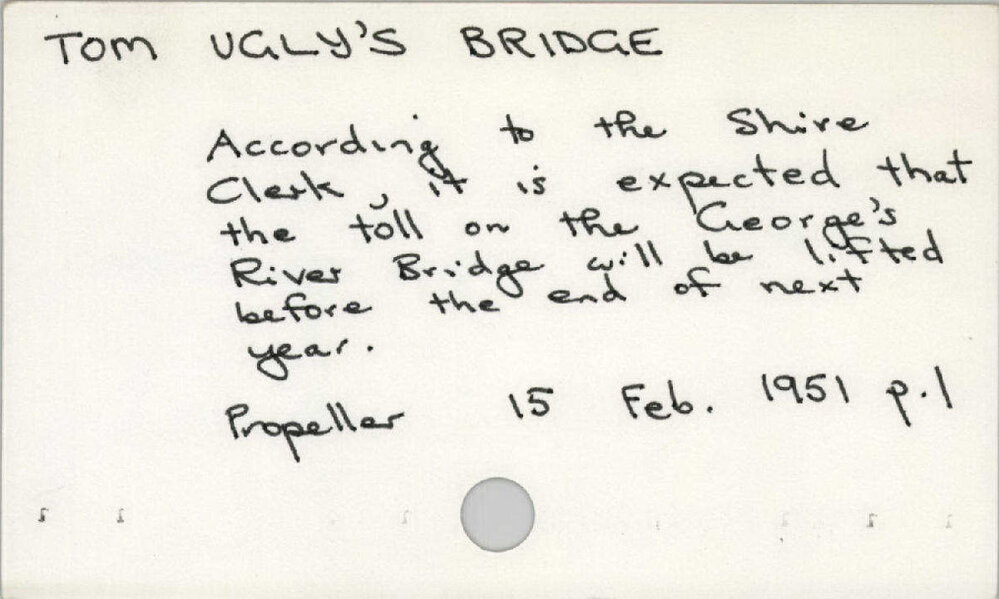 TOM UGLY'S BRIDGE
According to the Shire
Clerk, it is expected that
the toll on the George's
River Bridge will be lifted
before the end of next
year.
Propeller 15 Feb. 1951 p.1